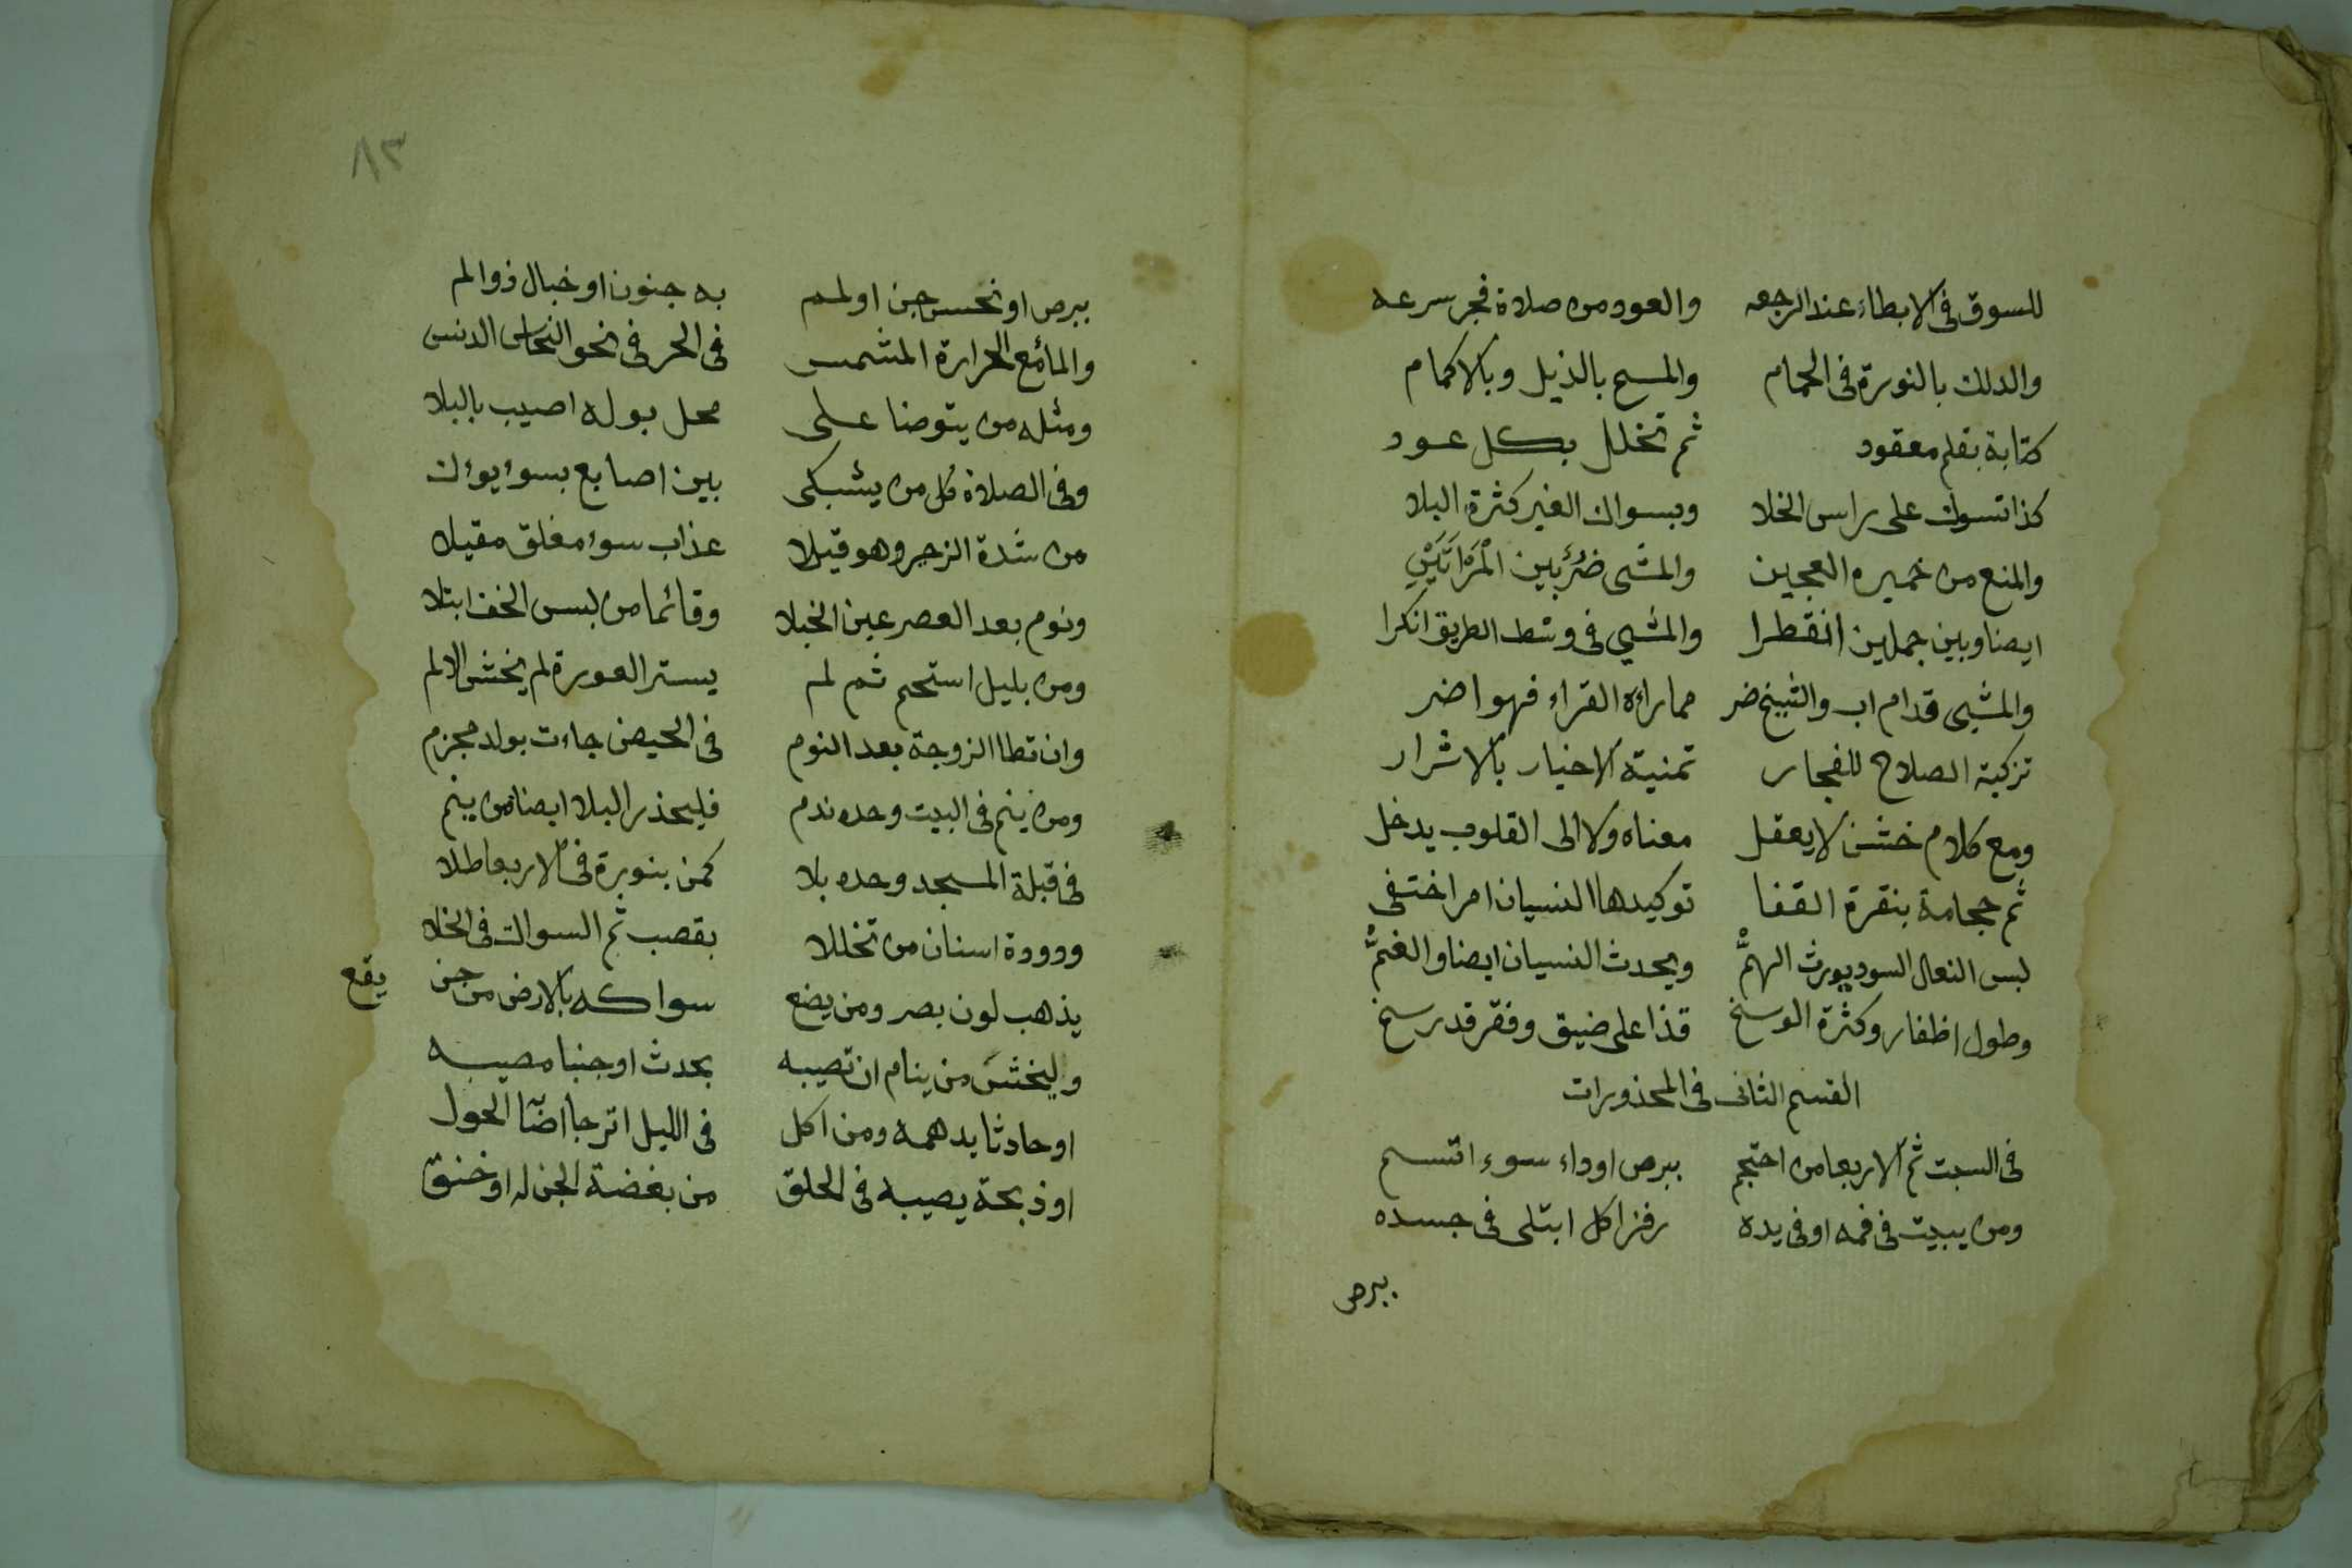 للسوق فى الابطاء عند الرجعه والعود من صلاة فجر سرعه
والدلك بالنورة فى الحمام والمسح بالذيل وبالاكمام
كتابة بقلم معقود ثم تخلل بكل عود
كذا تسوك على راس الخلا وبسواك الغير كثرة البلا
والمنع من خميره العجين والمشى ضُرَّ بين المْرَاَتَيْنِ
ايضا وبين جملين انقطرا والمشي فى وسط الطريق انكرا
والمشي قدام اب والشيخ ضر مماراة القراء فهو اضر
تزكية الصلاح للفجار تمنية الاخيار بالاشرار
ومع كلام خشن لا يعقل معناه ولا الى القلوب يدخل
ثم حجامة بنقرة القفا توكيدها النسيان امر اختفى
لبس النعال السود يورث الهمّْ ويحدث النسيان ايضا والغمّْ
وطول اظفار وكثرة الوسخ قذا على ضيق وفقر قد رسخ
القسم الثانى فى المحذورات
فى السبت ثم الاربعا من احتجم ببرص اوداء سوء اتسم
ومن يبيت فى فمه او فى يده رفز اكل ابتلى فى جسده
ببرص
٨٣
ببرص او نحس جن اولمم به جنون او خبال ذو الم
والمائع الحرارة المشمس فى الحر فى نحو النحاس الدنس
ومثله من يتوضا على محل بوله اصيب بالبلا
وفى الصلاة كل من يشبكى بين اصابع بسوء
من شدة الزحير وهو قيلا عذاب سوء مغلق مقيلا
ونوم بعد العصر عين الخبلا وقائما من لبس الخف ابتلا
ومن بليل استحم ثم لم يستر العورة لم يخش الالم
وان تطا الزوجة بعد النوم فى الحيض جاءت بولد مجزم
ومن ينم فى البيت وحده ندم فليحذر البلا ايضا من ينم
فى قبلة المسجد وحده بلا كمن بنورة فى الاربعا طلا
وودودة اسنان من تخللا بقصب ثم السواك فى الخلا
يذهب لون بصر ومن يضع سواكه بالارض من جن يقع
وليخش من ينام ان تصيبه بحدث او جنبا مصيبه
او حادثا يدهمه ومن اكل فى الليل اترجا الحول
او ذبحة يصيبه فى الحلق من بغضة الجن له او خنق